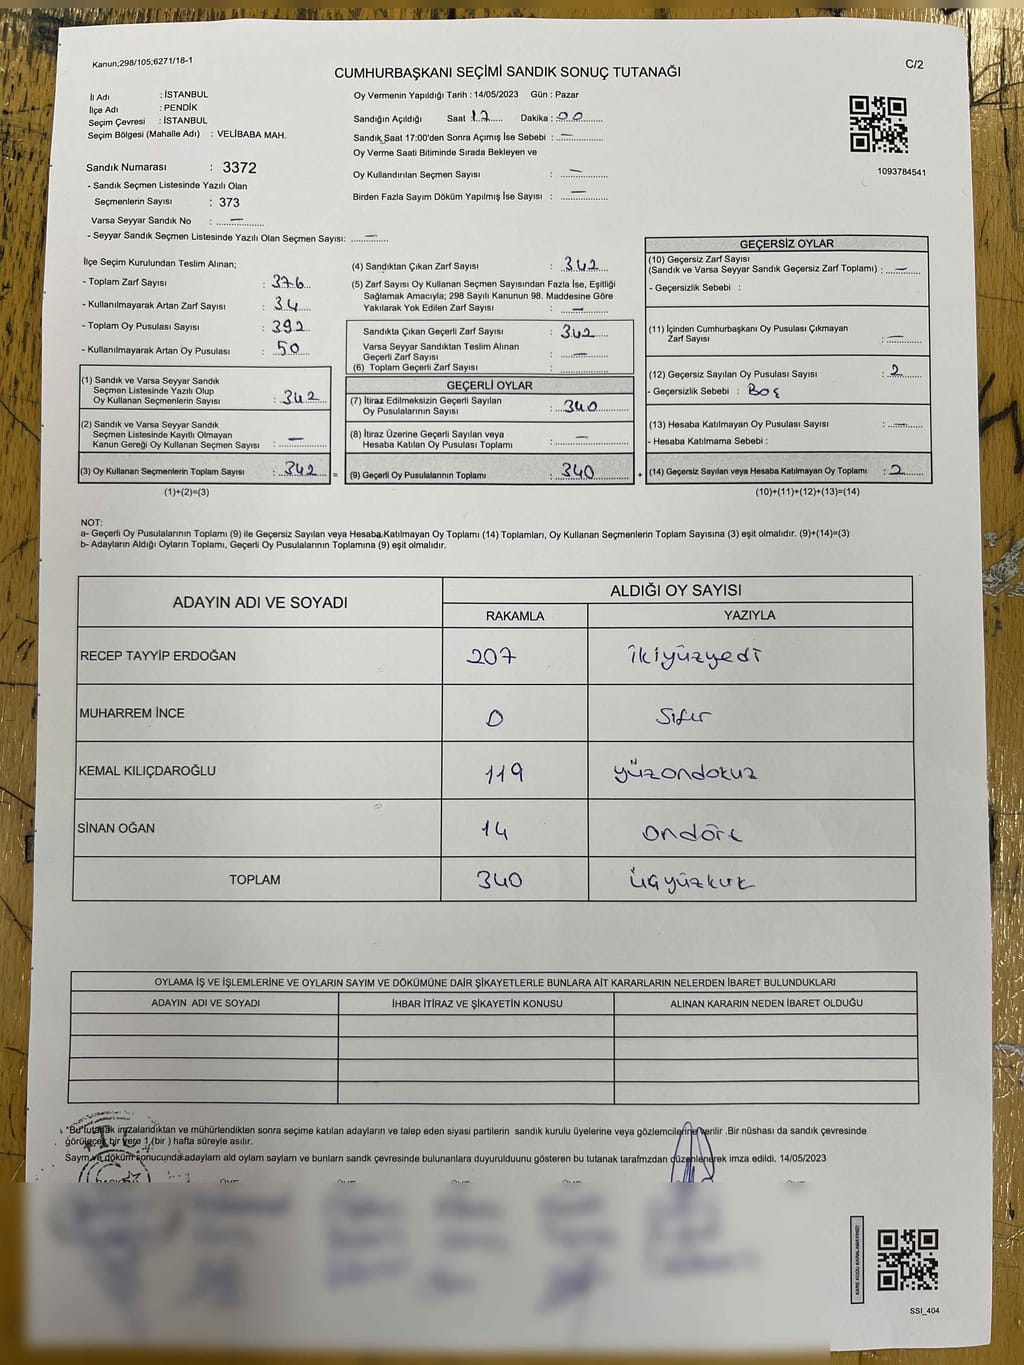 Kanun;298/105;6271/18-1
CUMHURBAŞKANI SEÇİMİ SANDIK SONUÇ TUTANAĞI
C/2
İl Adı : İSTANBUL
İlçe Adı : PENDİK
Seçim Çevresi : İSTANBUL
Seçim Bölgesi (Mahalle Adı) : VELİBABA MAH.
Sandık Numarası : 3372
- Sandık Seçmen Listesinde Yazılı Olan
Seçmenlerin Sayısı : 373
Varsa Seyyar Sandık No : —
- Seyyar Sandık Seçmen Listesinde Yazılı Olan Seçmen Sayısı: —
Oy Vermenin Yapıldığı Tarih : 14/05/2023 Gün : Pazar
Sandığın Açıldığı Saat 17 Dakika : 00
Sandık Saat 17:00'den Sonra Açımış İse Sebebi : —
Oy Verme Saati Bitiminde Sırada Bekleyen ve
Oy Kullandırılan Seçmen Sayısı : —
Birden Fazla Sayım Döküm Yapılmış İse Sayısı : —
1093784541
İlçe Seçim Kurulundan Teslim Alınan;
- Toplam Zarf Sayısı : 376
- Kullanılmayarak Artan Zarf Sayısı : 34
- Toplam Oy Pusulası Sayısı : 392
- Kullanılmayarak Artan Oy Pusulası : 50
(1) Sandık ve Varsa Seyyar Sandık
Seçmen Listesinde Yazılı Olup
Oy Kullanan Seçmenlerin Sayısı : 342
(2) Sandık ve Varsa Seyyar Sandık
Seçmen Listesinde Kayıtlı Olmayan
Kanun Gereği Oy Kullanan Seçmen Sayısı : —
(3) Oy Kullanan Seçmenlerin Toplam Sayısı : 342 =
(1)+(2)=(3)
(4) Sandıktan Çıkan Zarf Sayısı : 342
(5) Zarf Sayısı Oy Kullanan Seçmen Sayısından Fazla İse, Eşitliği
Sağlamak Amacıyla; 298 Sayılı Kanunun 98. Maddesine Göre
Yakılarak Yok Edilen Zarf Sayısı : —
Sandıkta Çıkan Geçerli Zarf Sayısı : 342
Varsa Seyyar Sandıktan Teslim Alınan
Geçerli Zarf Sayısı : —
(6) Toplam Geçerli Zarf Sayısı :
GEÇERLİ OYLAR
(7) İtiraz Edilmeksizin Geçerli Sayılan
Oy Pusulalarının Sayısı : 340
(8) İtiraz Üzerine Geçerli Sayılan veya
Hesaba Katılan Oy Pusulası Toplamı : —
(9) Geçerli Oy Pusulalarının Toplamı : 340 +
GEÇERSİZ OYLAR
(10) Geçersiz Zarf Sayısı
(Sandık ve Varsa Seyyar Sandık Geçersiz Zarf Toplamı) : —
- Geçersizlik Sebebi :
(11) İçinden Cumhurbaşkanı Oy Pusulası Çıkmayan
Zarf Sayısı : —
(12) Geçersiz Sayılan Oy Pusulası Sayısı : 2
- Geçersizlik Sebebi : Boş
(13) Hesaba Katılmayan Oy Pusulası Sayısı : —
- Hesaba Katılmama Sebebi :
(14) Geçersiz Sayılan veya Hesaba Katılmayan Oy Toplamı : 2
(10)+(11)+(12)+(13)=(14)
NOT:
a- Geçerli Oy Pusulalarının Toplamı (9) ile Geçersiz Sayılan veya Hesaba Katılmayan Oy Toplamı (14) Toplamları, Oy Kullanan Seçmenlerin Toplam Sayısına (3) eşit olmalıdır. (9)+(14)=(3)
b- Adayların Aldığı Oyların Toplamı, Geçerli Oy Pusulalarının Toplamına (9) eşit olmalıdır.
ADAYIN ADI VE SOYADI
ALDIĞI OY SAYISI
RAKAMLA YAZIYLA
RECEP TAYYİP ERDOĞAN 207 ikiyüzyedi
MUHARREM İNCE 0 Sıfır
KEMAL KILIÇDAROĞLU 119 yüzondokuz
SİNAN OĞAN 14 ondört
TOPLAM 340 üçyüzkırk
OYLAMA İŞ VE İŞLEMLERİNE VE OYLARIN SAYIM VE DÖKÜMÜNE DAİR ŞİKAYETLERLE BUNLARA AİT KARARLARIN NELERDEN İBARET BULUNDUKLARI
ADAYIN ADI VE SOYADI İHBAR İTİRAZ VE ŞİKAYETİN KONUSU ALINAN KARARIN NEDEN İBARET OLDUĞU
*Bu tutanak imzalandıktan ve mühürlendikten sonra seçime katılan adayların ve talep eden siyasi partilerin sandık kurulu üyelerine veya gözlemcilerine verilir .Bir nüshası da sandık çevresinde
görülecek bir yere 1 (bir ) hafta süreyle asılır.
Sayım ve döküm sonucunda adaylarn ald oylarn saylarn ve bunlarn sandk çevresinde bulunanlara duyurulduunu gösteren bu tutanak tarafmzdan düzenlenerek imza edildi. 14/05/2023
KARE KODU KARALAMAYINIZ!
SSI_404